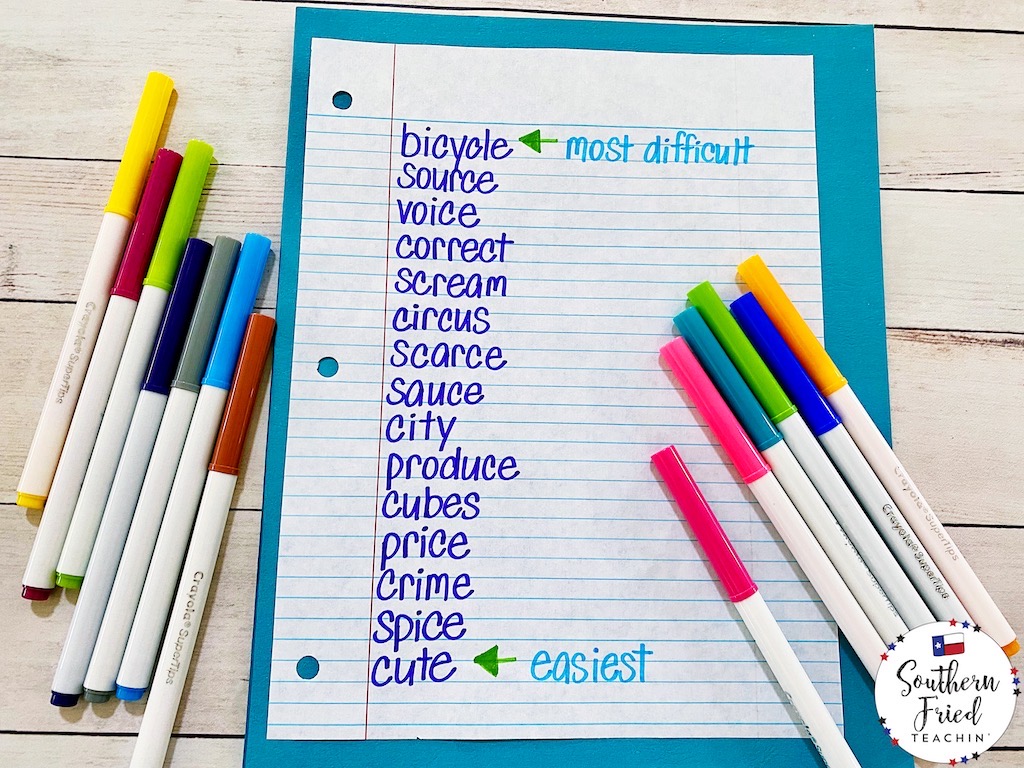 bicycle most difficult
source
voice
correct
scream
circus
scarce
sauce
city
produce
cubes
price
crime
spice
cute easiest
Crayola® SuperTips
Crayola® SuperTips
Crayola® SuperTips
Crayola® SuperTips
Southern
Fried
TEACHIN'